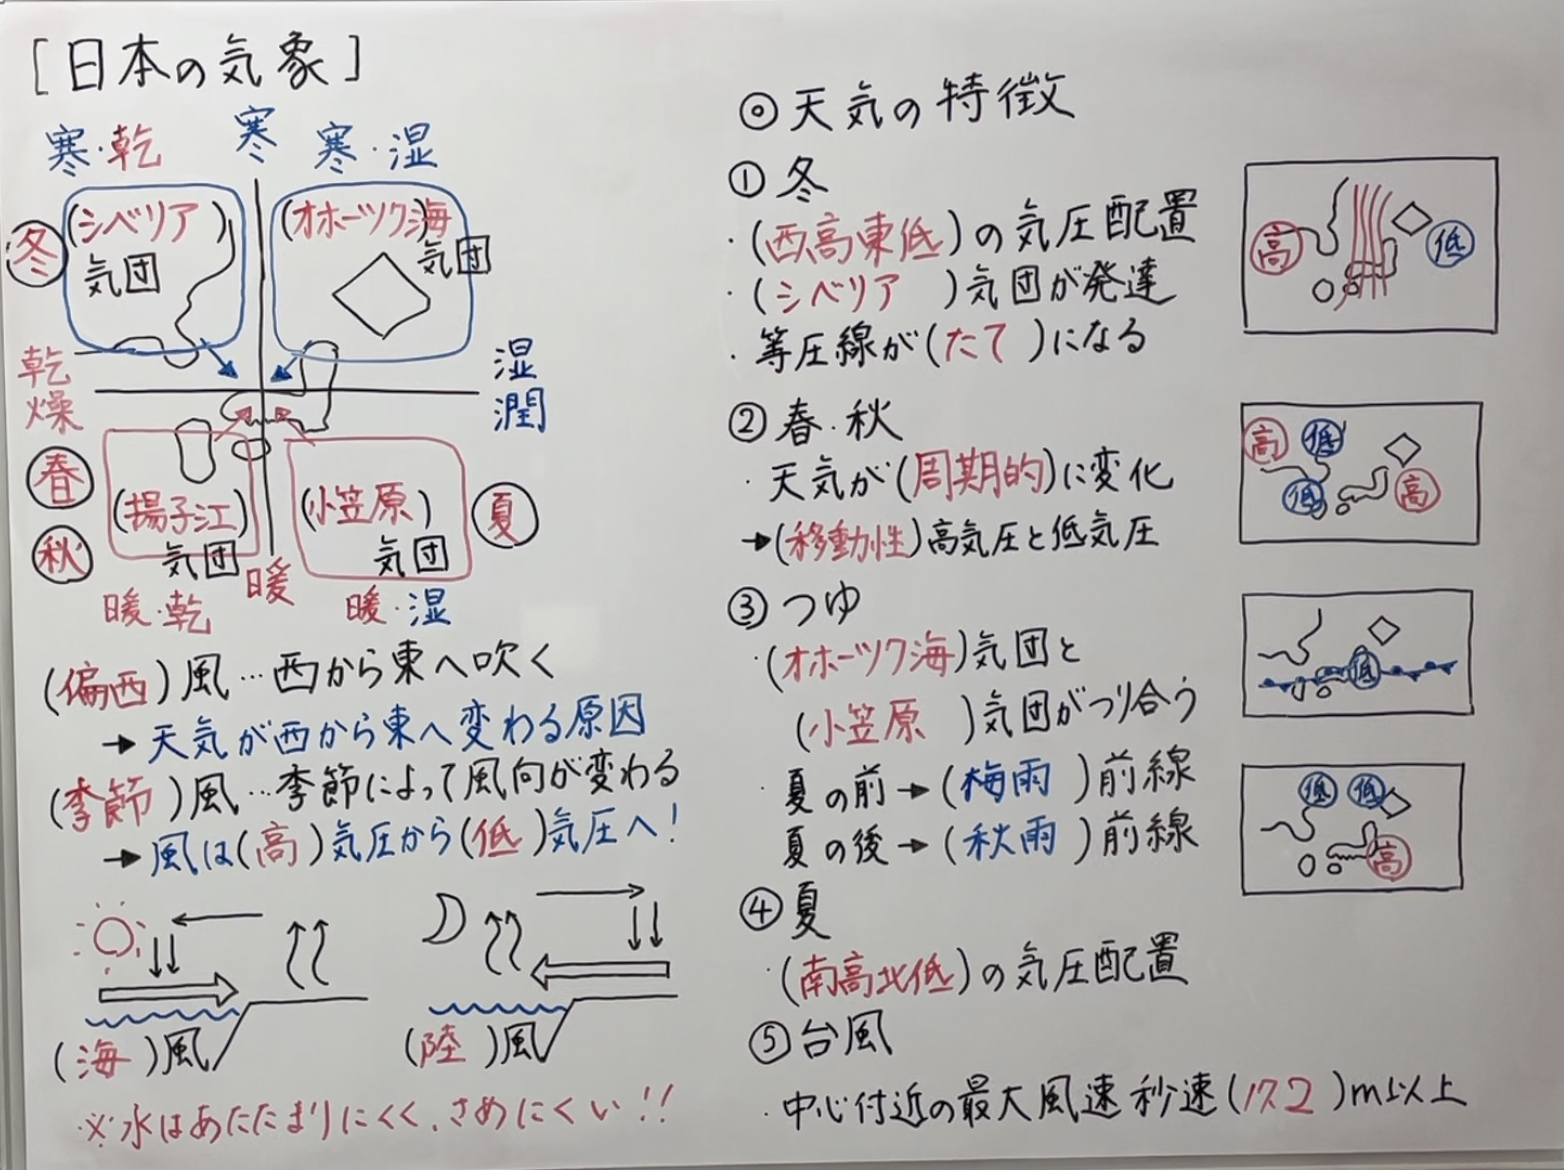 [日本の気象]
寒・乾
寒
寒・湿
冬
(シベリア)
気団
(オホーツク海)
気団
乾燥
湿潤
春
秋
(揚子江)
気団
(小笠原)
気団
夏
暖・乾
暖
暖・湿
(偏西)風…西から東へ吹く
→天気が西から東へ変わる原因
(季節)風…季節によって風向が変わる
→風は(高)気圧から(低)気圧へ!
(海)風
(陸)風
※水はあたたまりにくく、さめにくい!!
◎天気の特徴
①冬
・(西高東低)の気圧配置
・(シベリア)気団が発達
・等圧線が(たて)になる
高
低
②春・秋
・天気が(周期的)に変化
→(移動性)高気圧と低気圧
高
低
低
高
③つゆ
・(オホーツク海)気団と
(小笠原)気団がつり合う
・夏の前→(梅雨)前線
夏の後→(秋雨)前線
低
低
低
高
④夏
・(南高北低)の気圧配置
⑤台風
・中心付近の最大風速秒速(17.2)m以上